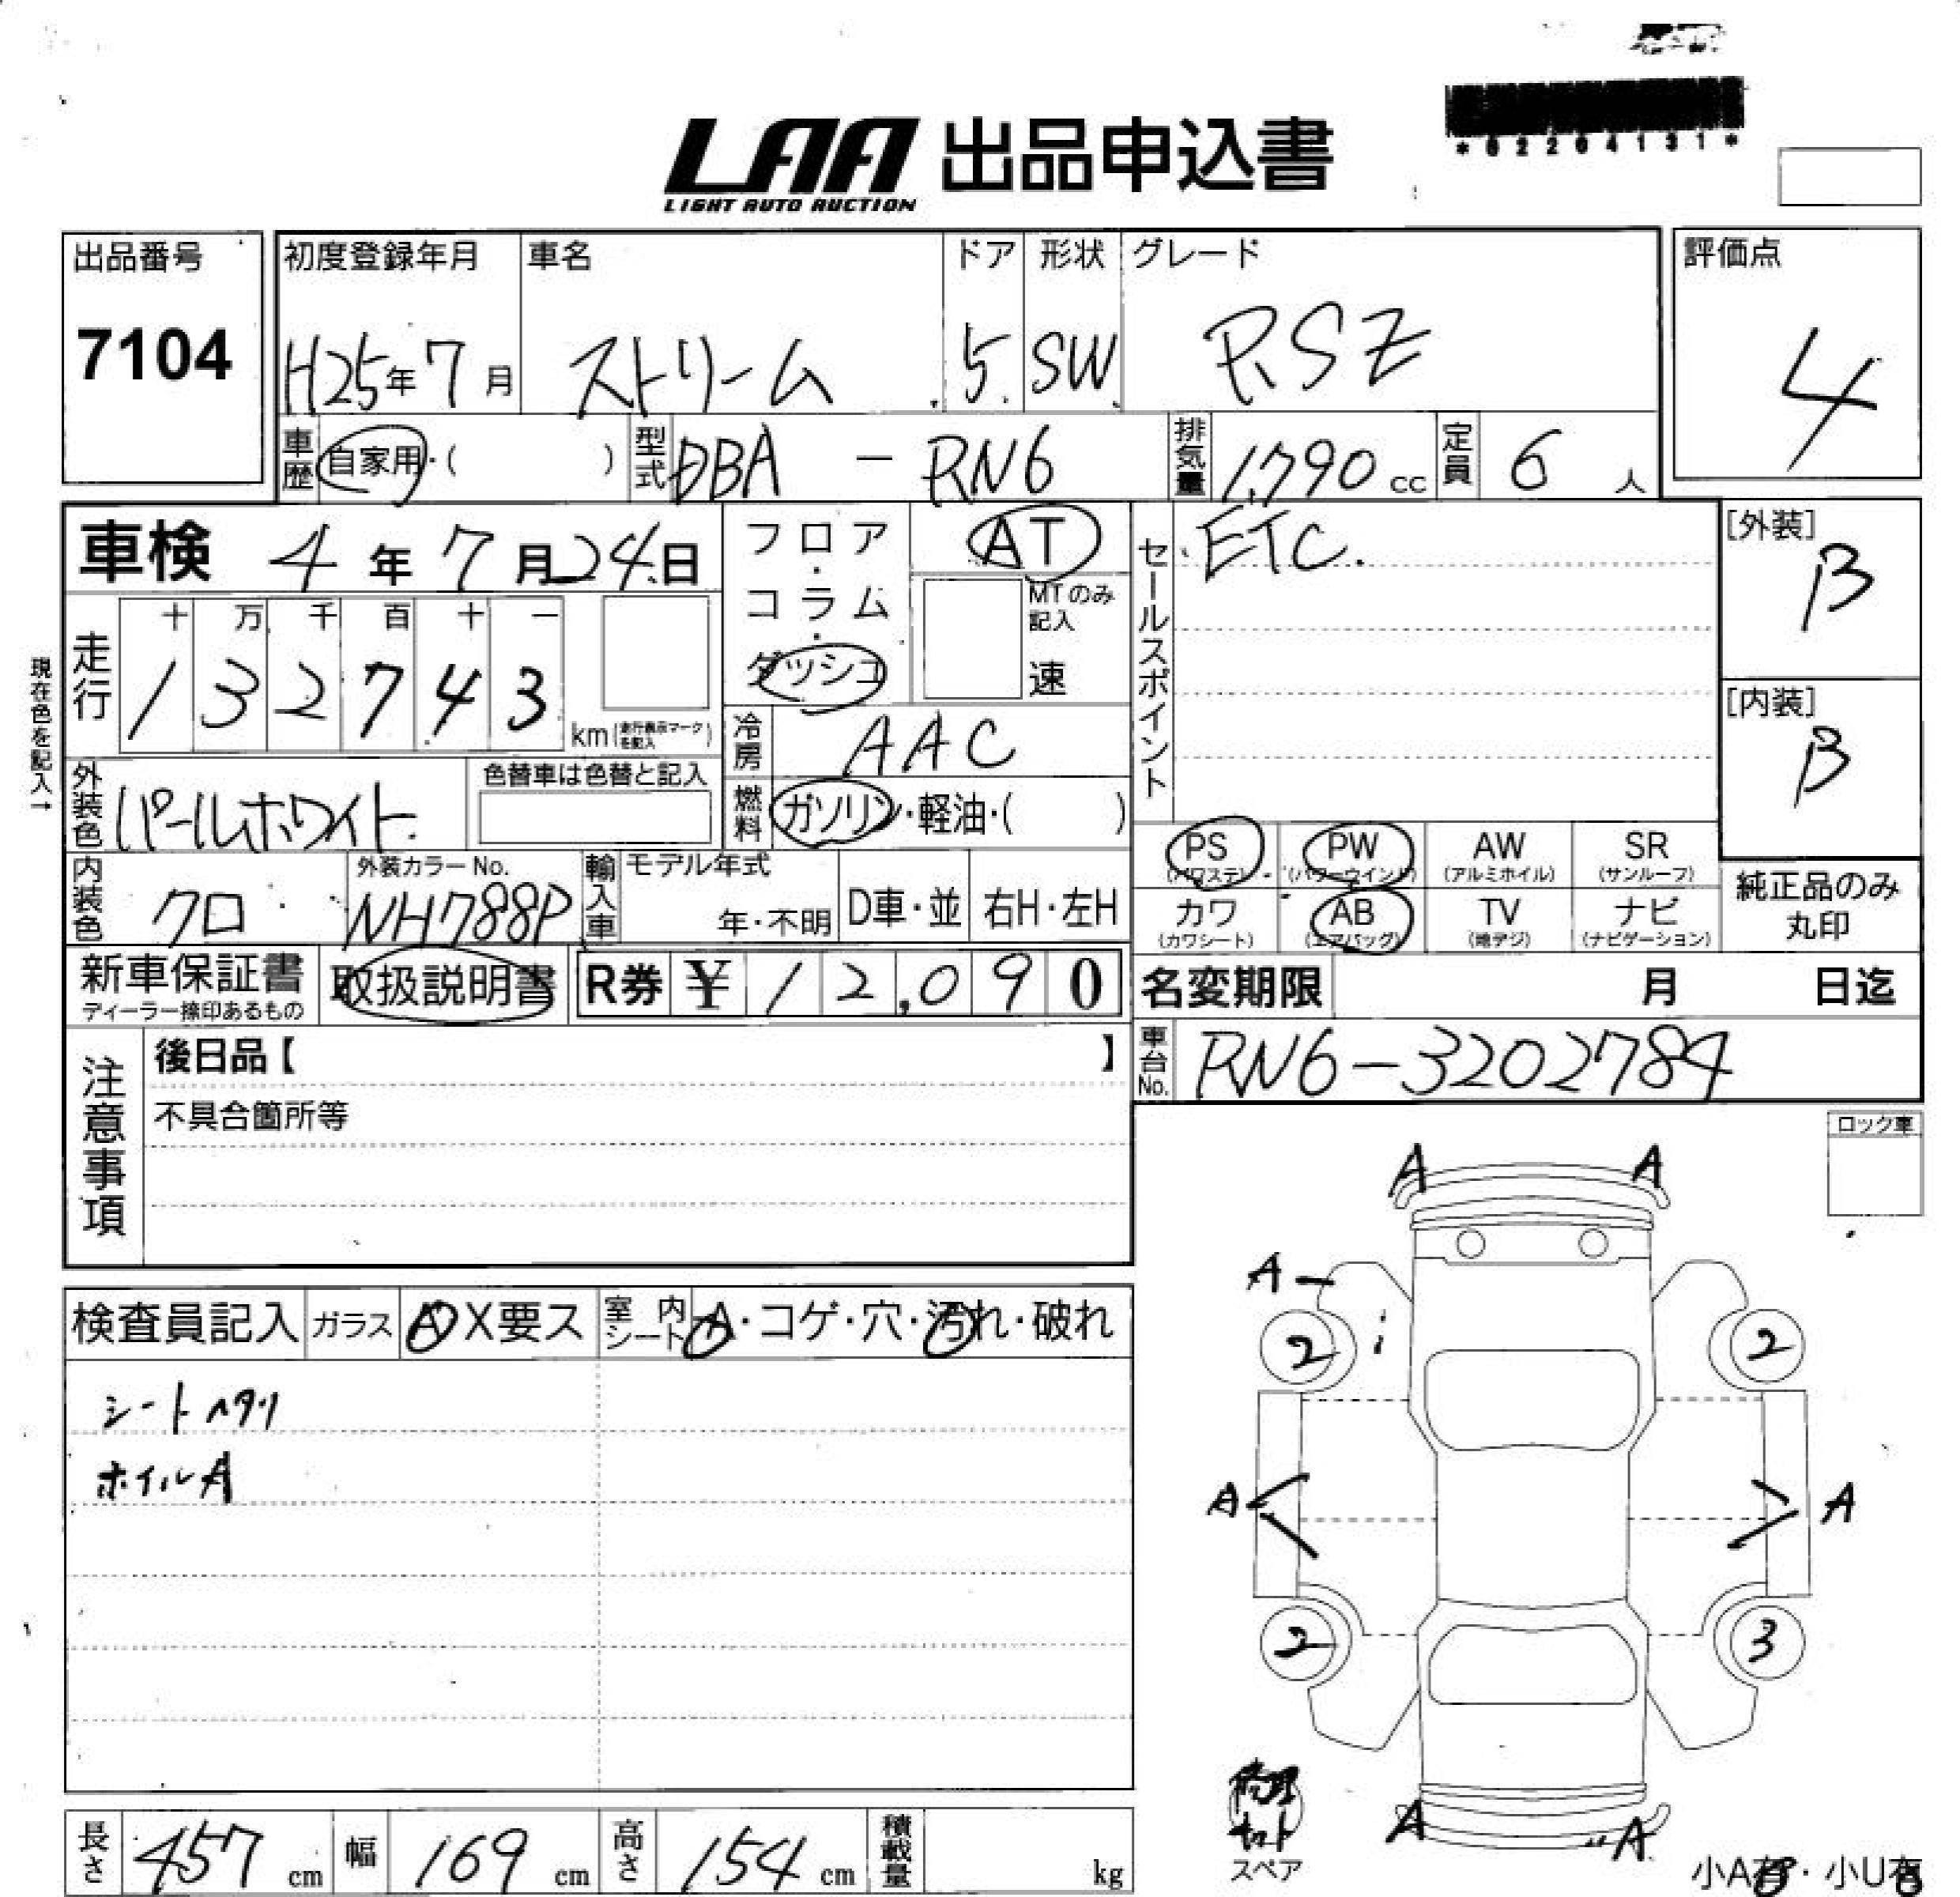 *02204131*
LAA 出品申込書
LIGHT AUTO AUCTION
出品番号 初度登録年月 車名 ドア 形状 グレード 評価点
7104 H25年7月 ストリーム 5 SW RSZ 4
車歴 自家用・( ) 型式 DBA - RN6 排気量 1,790cc 定員 6人
車検 4年7月24日 フロア・コラム・ダッシュ AT セールスポイント ETC. [外装] B
MTのみ記入 速
現在色を記入→
走行 十 万 千 百 十 一
1 3 2 7 4 3 km (走行表示マークを記入) [内装] B
冷房 AAC
外装色 パールホワイト 色替車は色替と記入 燃料 ガソリン・軽油・( )
PS (パワステ) PW (パワーウインド) AW (アルミホイル) SR (サンルーフ)
内装色 クロ 外装カラーNo. NH788P 輸入車 モデル年式 年・不明 D車・並 右H・左H
カワ (カワシート) AB (エアバッグ) TV (地デジ) ナビ (ナビゲーション) 純正品のみ丸印
新車保証書 ディーラー捺印あるもの 取扱説明書 R券 ¥ 12,090 名変期限 月 日迄
注意事項 後日品【 】 車台No. RN6-3202784
不具合箇所等
ロック車
A A
A
検査員記入 ガラス A X要ス 室内シート A・コゲ・穴・汚れ・破れ
2 2
シートヘタリ
ホイルA
A A
2 3
修理キット
スペア
A A
長さ 457cm 幅 169cm 高さ 154cm 積載量 kg
小A有・小U有